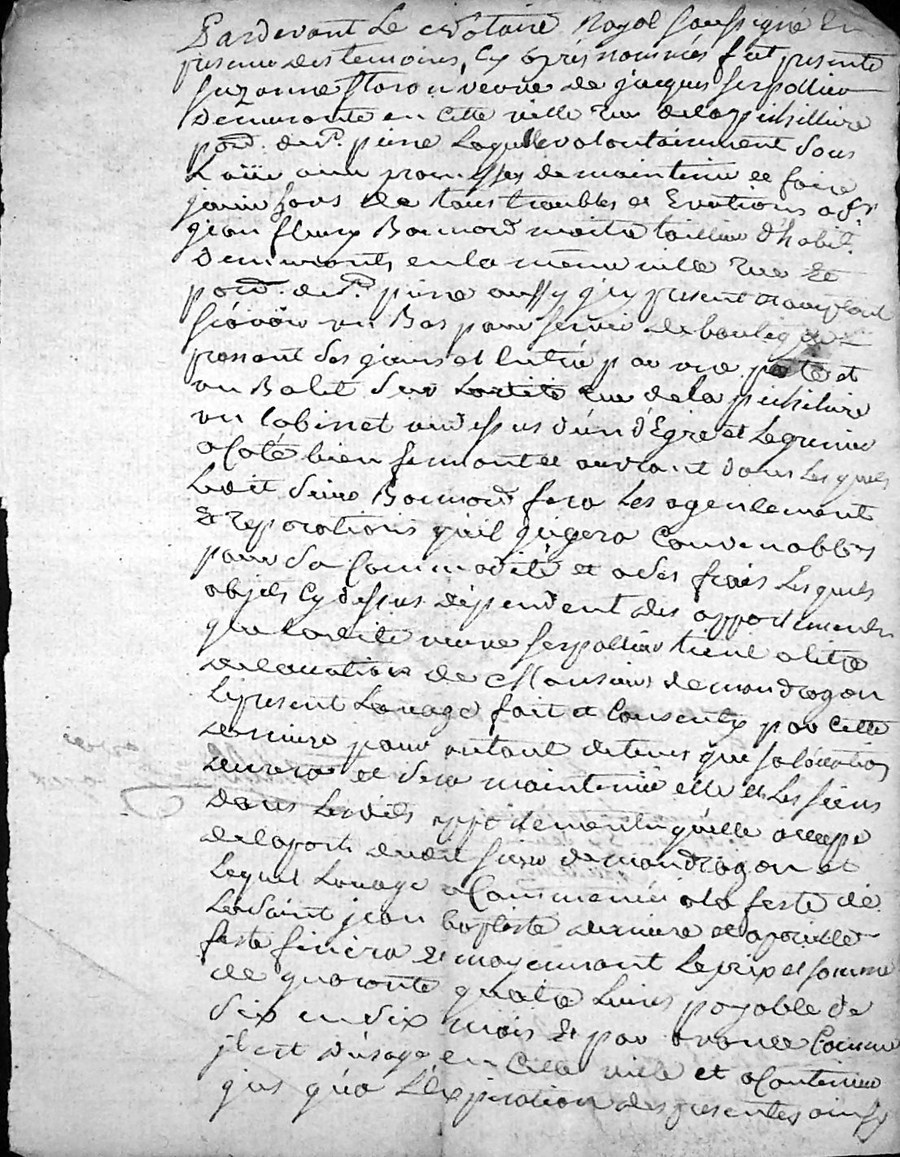 Pardevant Le Notaire Royal soussigné En
presence des temoins, Cy après nommés fut presente
suzanne veuve de jacques serpollier
Demeurante en Cette ville rue de la pisilliere
parr. de St. pierre Laquelle volontairement sous
avec promesses de maintenir et faire
jouir hors de tous troubles et Evictions a Sr
jean fleury Bonnord maitre tailleur d'habit.
Demeurants en la meme ville rue et
parr. de St. pierre aussy icy present et acceptant
sçavoir un Bas pour servir de boutique
prenant ses jours et Entrée par une porte et
un Balet sur Ladite rue de la pisiliere
un Cabinet audessus d'un dEgré et Le grenier
a Coté bien fermant et ouvrant dans Les quels
Ledit sieur Bonnord fera Les agencement
Et reparations qu'il jugera Convenables
pour sa Commodité et a ses frais Les quels
objets Cy dessus dépendent des appartements
que Ladite veuve serpollier tient a titre
de location de Monsieur de mondragon
Le present Louage fait et Consenty par Cette
derniere pour autant de tems que sa location
durera et sera maintenüe elle et Les siens
dans Lesdits appartements qu'elle occupe
de la part dudit sieur de mondragon et
Lequel Louage a Commencé a la feste de
La saint jean baptiste derniere et a pareille
feste finira Et moyennant Le prix et somme
de quarante quatre Livres payable de
six en six mois Et par avance Comme
il est d'usage en Cette ville et a Continuer
jus qu'a L'Expiration des presentes ainsy